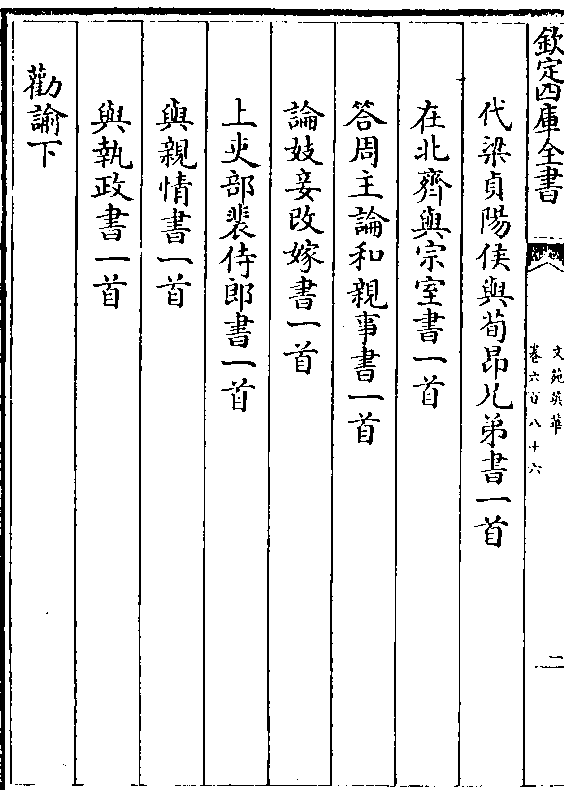 欽定四庫全書
文苑英華
卷六百八十六
二
代梁貞陽侯與荀昂兄弟書一首
在北齊與宗室書一首
答周主論和親事書一首
論妓妾改嫁書一首
上吏部裴侍郎書一首
與親情書一首
與執政書一首
勸諭下